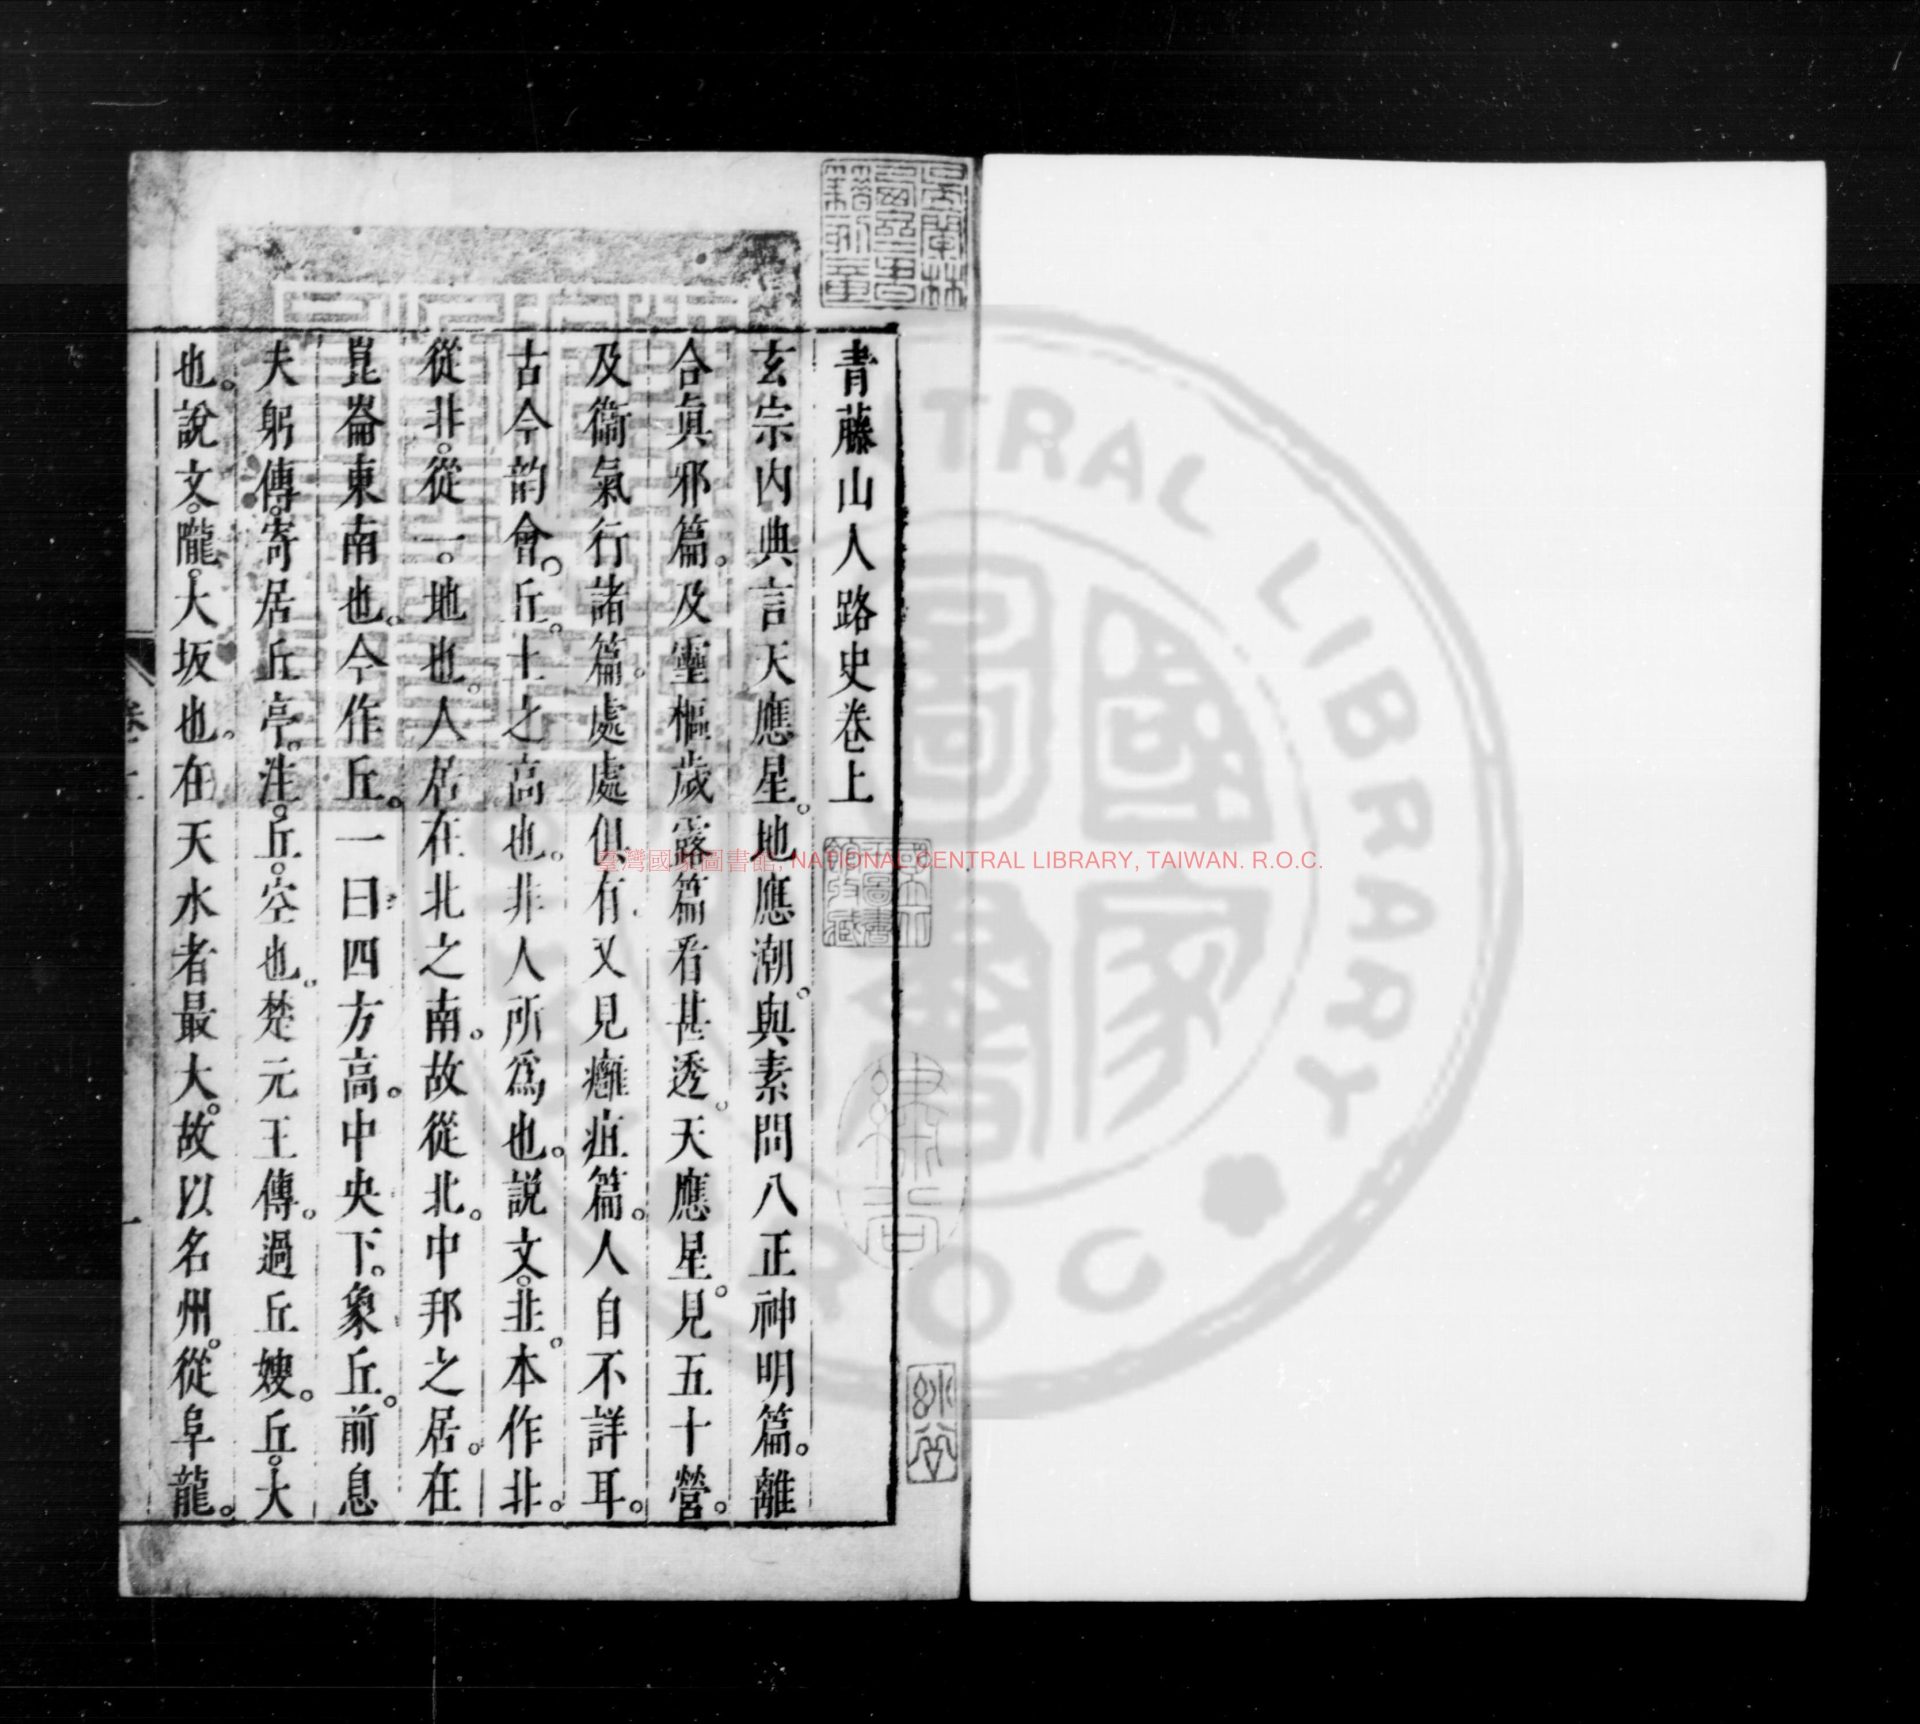 青藤山人路史卷上
玄宗內典言天應星。地應潮。與素問八正神明篇。離
合眞邪篇。及靈樞歲露篇看甚透。天應星。見五十營。
及衞氣行諸篇。處處俱有。又見癰疽篇。人自不詳耳。
古今韵會。丘。土之高也。非人所爲也。説文。丠。本作北。
從北。從一。地也。人居在北之南。故從北。中邦之居。在
崑崙東南也。今作丘。一曰四方高。中央下。象丘。前息
夫躬傳。寄居丘亭。注。丘。空也。楚元王傳。過丘嫂。丘。大
也。說文。隴。大坂也。在天水者最大。故以名州。從阜龍。
卷上
一
臺灣國家圖書館, NATIONAL CENTRAL LIBRARY, TAIWAN. R.O.C.